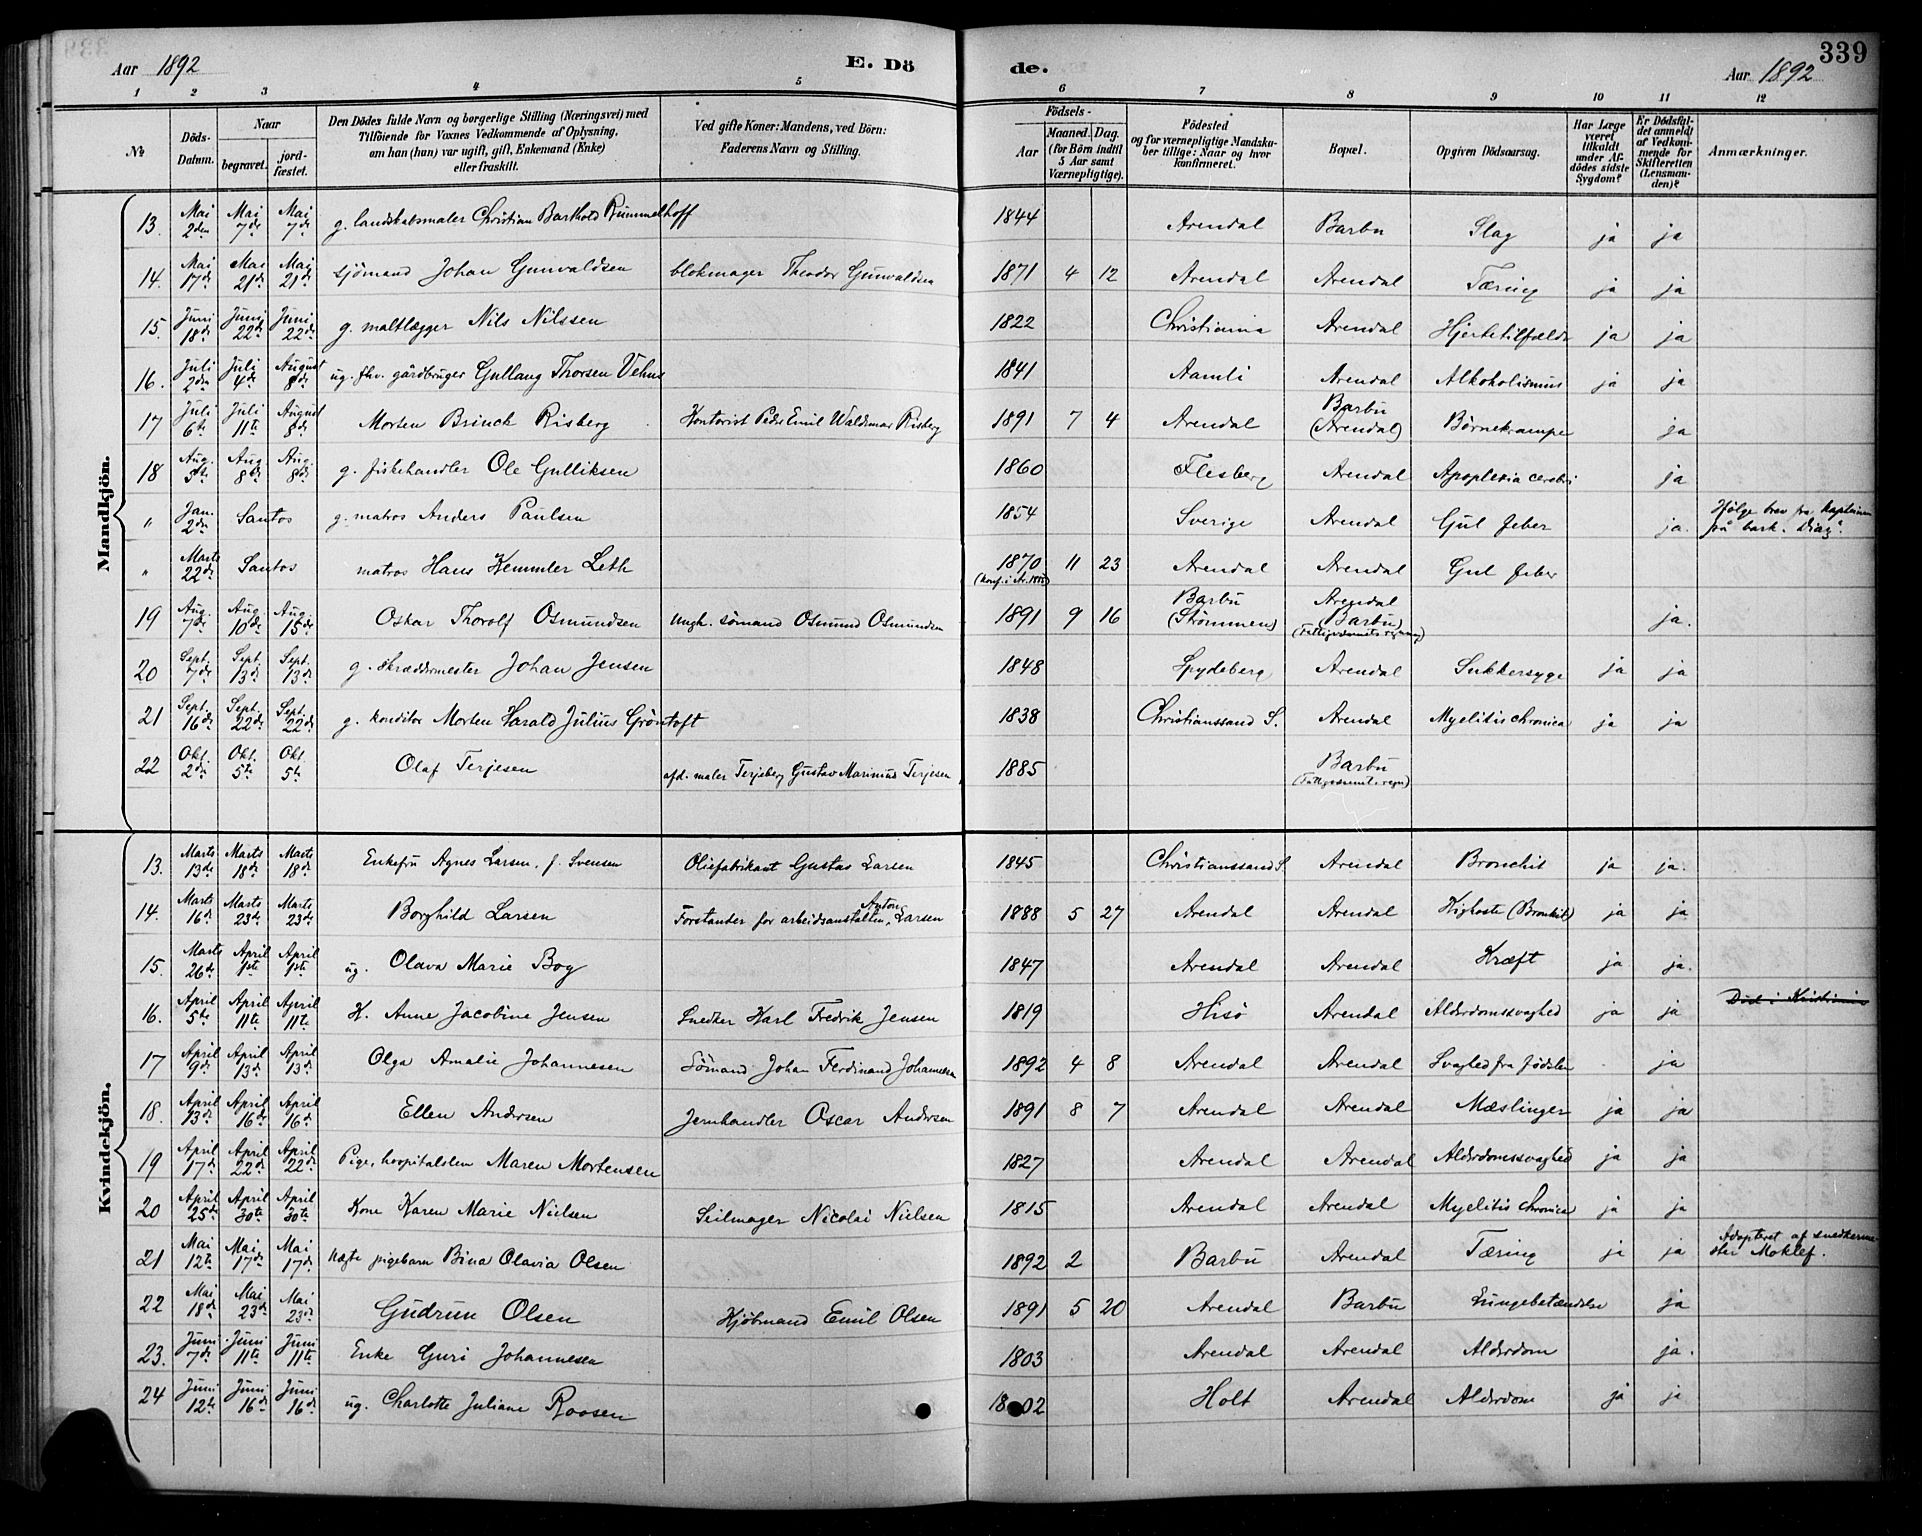 Aar 1892
E. Dö
de.
339
Aar 1892
1 2 3 4 5 6 7 8 9 10 11 12
№
Döds-Datum.
Naar
begravet.
jord-fæstet.
Den Dödes fulde Navn og borgerlige Stilling (Næringsvei) med
Tilföiende for Voxnes Vedkommende af Oplysning,
om han (hun) var ugift, gift, Enkemand (Enke)
eller fraskilt.
Ved gifte Koner: Mandens, ved Börn:
Faderens Navn og Stilling.
Födsels-
Aar
Maaned. Dag.
(for Börn indtil
5 Aar samt
Værnepligtige).
Födested
og for værnepligtige Mandska-
ber tillige: Naar og hvor
konfirmeret.
Bopæl.
Opgiven Dödsaarsag.
Har Læge
været
tilkaldt
under Af-
dödes sidste
Sygdom?
Er Dödsfal-
det anmeldt
af Vedkom-
mende for
Skifteretten
(Lensman-
den)?
Anmærkninger.
Mandkjön.
13. Mai 2den Mai 7de Mai 7de g. landskabsmaler Christian Barthold Rummelhoff 1844 Arendal Barbu Slag ja ja
14. Mai 17de Mai 21de Mai 21de sjömand Johan Gunvaldsen blokmager Theodor Gunvaldsen 1871 4 12 Arendal Arendal Tæring ja ja
15. Juni 18de Juni 22de Juni 22de g. maltlægger Nils Nilssen 1822 Christiania Arendal Hjertetilfælde ja ja
16. Juli 2den Juli 4de August 8de ug. fhv. gårdbruger Gullang Thorsen Vehus 1841 Aamli Arendal Alkoholismus ja ja
17 Juli 6te Juli 11te August 8de Morten Brinch Risberg Kontorist Peder Emil Waldemar Risberg 1891 7 4 Arendal Barbu (Arendal) Børnekrampe ja
18 Aug. 5te Aug. 8de Aug. 8de g. fiskehandler Ole Gulliksen 1860 Flesberg Arendal Apoplexia cerebri ja
" Jan. 2den Santos g. matros Anders Paulsen 1854 Sverige Arendal Gul feber ja. Ifølge brev fra kapteinen på bark "Diaz".
" Marts 22de Santos matros Hans Kemmler Leth 1870 11 23 Arendal Arendal Gul feber
19 Aug. 7de Aug. 10de Aug. 15de Oskar Thorolf Osmundsen Ungk. sømand Osmund Osmundsen 1891 9 16 Barbu (Strømmen) Arendal Barbu) ja.
20 Sept. 7de Sept. 13de Sept. 13de g. skræddermester Johan Jensen 1848 Spydeberg Arendal Sukkersyge ja ja
21 Sept. 16de Sept. 22de Sept. 22de g. konditor Morten Harald Julius Gröntoft 1838 Christianssand S. Arendal Myelitis chronica ja ja
22 Okt. 2den Okt. 5te Okt. 5te Olaf Terjesen afd. maler Terjeberg Gustav Marinius Terjesen 1885 Barbu
Kvindekjön.
13. Marts 13de Marts 18de Marts 18de Enkefru Agnes Larsen, f. Svensen Oliefabrikant Gustav Larsen 1845 Christianssand S. Arendal Bronchit ja ja.
14. Marts 16de Marts 23de Marts 23de Borghild Larsen Forstander for arbeidsanstalten, Anton Larsen 1888 5 27 Arendal Arendal Kighoste (Bronkit) ja ja
15. Marts 26de April 1ste April 1ste ug. Olava Marie Boy 1847 Arendal Arendal Kræft ja ja.
16. April 5te April 11te April 11te K. Anne Jacobine Jensen Snedker Karl Fredrik Jensen 1819 Hisö Arendal Alderdomssvaghed ja ja Död i Kristiania
17 April 9de April 13de April 13de Olga Amalie Johannesen Sömand Johan Ferdinand Johannesen 1892 4 8 Arendal Arendal Svaghed fra fødslen ja
18. April 13de April 16de April 16de Ellen Andersen Jernhandler Oscar Andersen 1891 8 7 Arendal Arendal Mæslinger ja ja
19 April 17de April 22de April 22de Pige, hospitalslem Maren Mortensen 1827 Arendal Arendal Alderdomssvaghed ja ja
20 April 25de April 30te April 30te Kone Karen Marie Nielsen Seilmager Nicolai Nielsen 1815 Arendal Arendal Myelitis chronica ja ja
21 Mai 12te Mai 17de Mai 17de Uægte pigebarn Bina Olavia Olsen 1892 2 Barbu Arendal Tæring ja ja Adopteret af snedkerme-ster Moklef.
22 Mai 18de Mai 23de Mai 23de Gudrun Olsen Kjöbmand Emil Olsen 1891 5 20 Arendal Barbu Lungebetændelse ja
23. Juni 7de Juni 11te Juni 11te Enke Guri Johannesen 1803 Arendal Arendal Alderdom ja.
24 Juni 12te Juni 16de Juni 16de ug. Charlotte Juliane Roosen 1802 Holt Arendal Alderdom ja ja